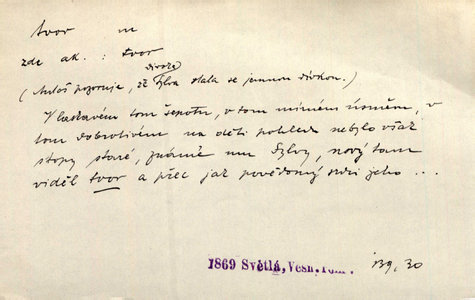 tvor m
zde ak. : tvor
divoká
(Antoš pozoruje, že Sylva stala se jemnou dívkou.)
V laskavém tom šepotu, v tom mírném úsměvu, v
tom dobrotivém na děti pohledu nebylo však
stopy staré, známé mu Sylvy, nový tam
viděl tvor a přec jak povědomý srdci jeho ...
1869 Světlá, Vesn. rom. 139, 30